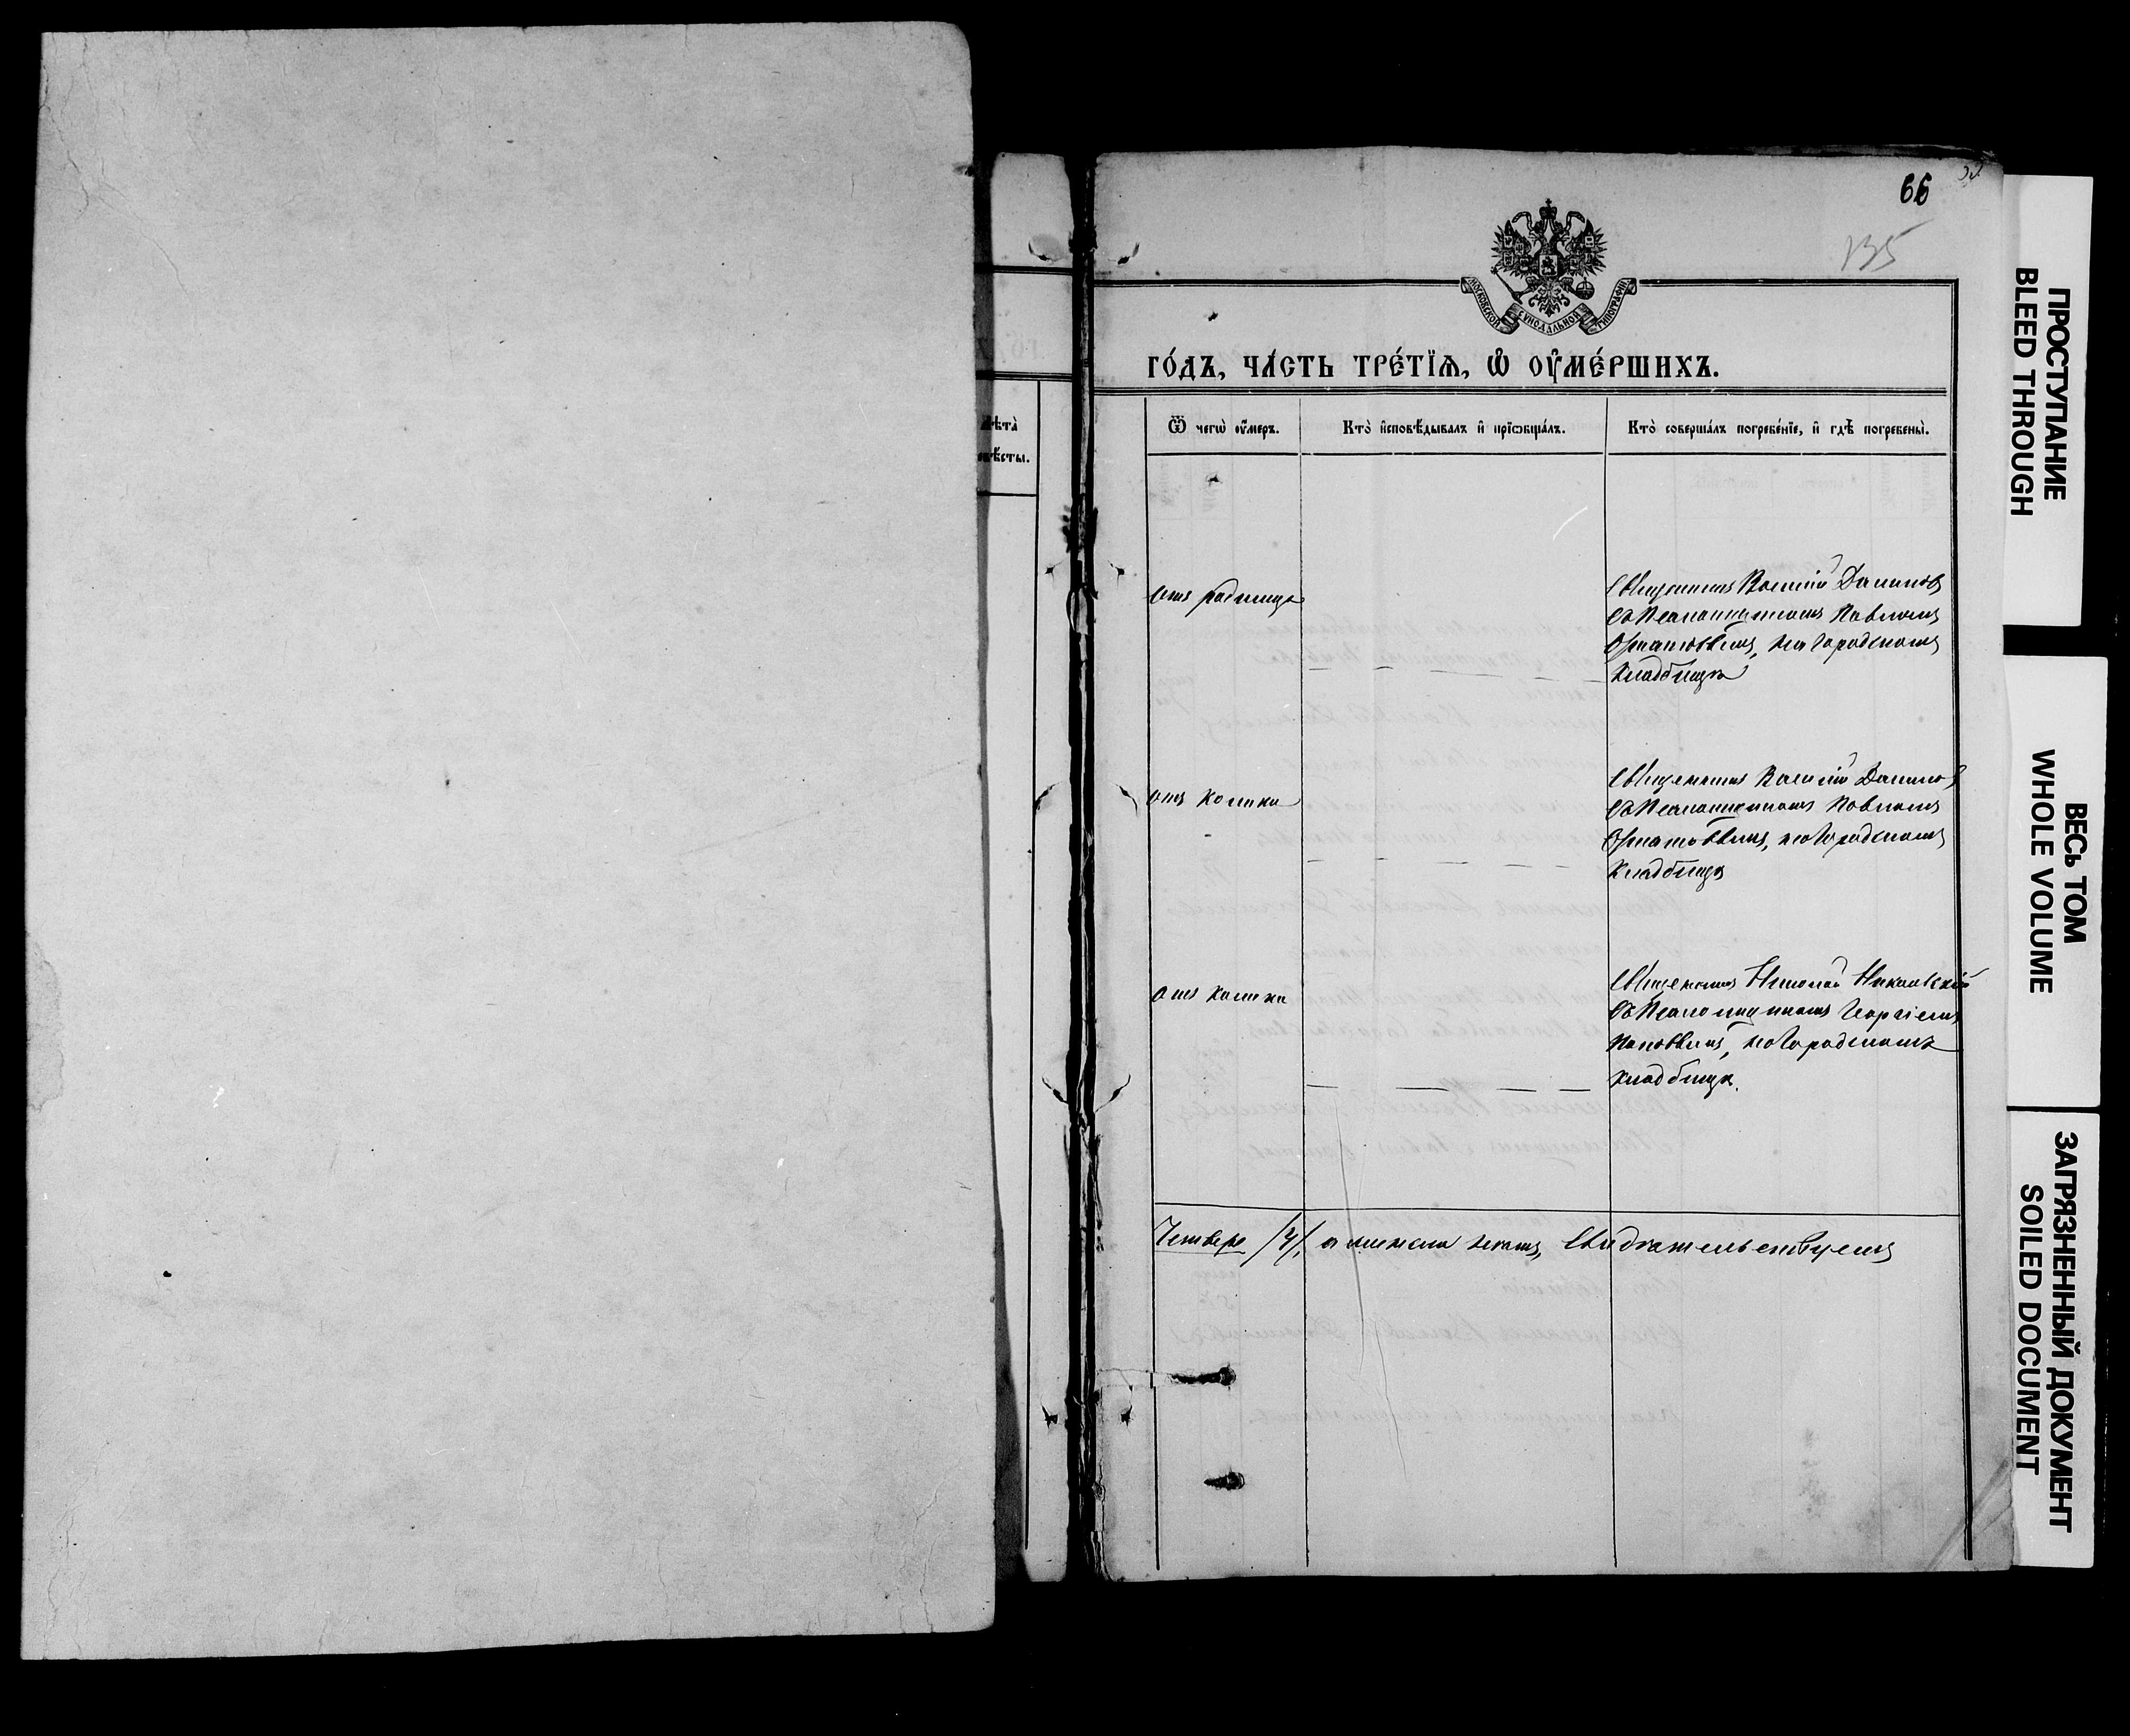 66
135
МОСКОВСКОЙ СѴНОДАЛЬНОЙ ТИПОГРАФІИ
ГО́ДЪ, ЧА́СТЬ ТРЕ́ТЇѦ, Ѡ҆ ОУ҆МЕ́РШИХЪ.
лѣ́та̀
невѣ́сты.
Ѿ чегѡ̀ оу҆́меръ.
Кто̀ и҆сповѣ́дывалъ и҆ прїѡбща́лъ.
Кто̀ соверша́лъ погребе́нїе, и҆ гдѣ̀ погребены̀.
отъ родимца
Священникъ Василій Данилов
съ Псаломщикомъ Павломъ
на Городскомъ
кладбищѣ
отъ колики
Священникъ Василій Данилов
съ Псаломщикомъ Павломъ
на Городскомъ
кладбищѣ
отъ колики
Священникъ Николай Никольскій
съ Псаломщикомъ Георгіемъ
Поповымъ, на Городскомъ
кладбищѣ.
Четверо /4/, а женска свидѣтельствуемъ
ПРОСТУПАНИЕ
BLEED THROUGH
ВЕСЬ ТОМ
WHOLE VOLUME
ЗАГРЯЗНЕННЫЙ ДОКУМЕНТ
SOILED DOCUMENT